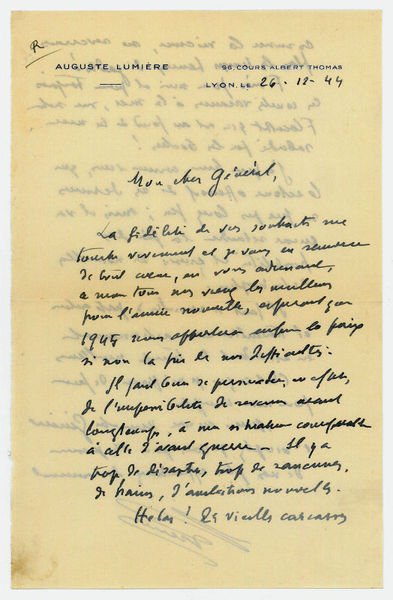 AUGUSTE LUMIÈRE
96, COURS ALBERT THOMAS
LYON, LE 26-12-44
Mon cher Général,
La fidélité de vos souhaits me
touche vivement et je vous en remercie
de tout cœur, en vous adressant,
à mon tour nos vœux les meilleurs
pour l'année nouvelle, espérant que
1945 nous apportera enfin la paix
si non la fin de nos difficultés.
Il faut bien se persuader, en effet,
de l'impossibilité de revenir avant
longtemps, à une situation comparable
à celle d'avant guerre. Il y a
trop de désastres, trop de rancunes,
de haines, d'ambitions nouvelles.
Hélas! Les vieilles carcasses